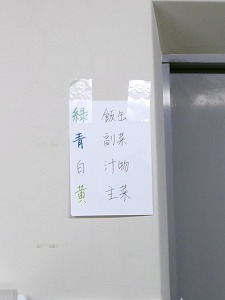 緑 飯缶
青 副菜
白 汁物
黄 主菜